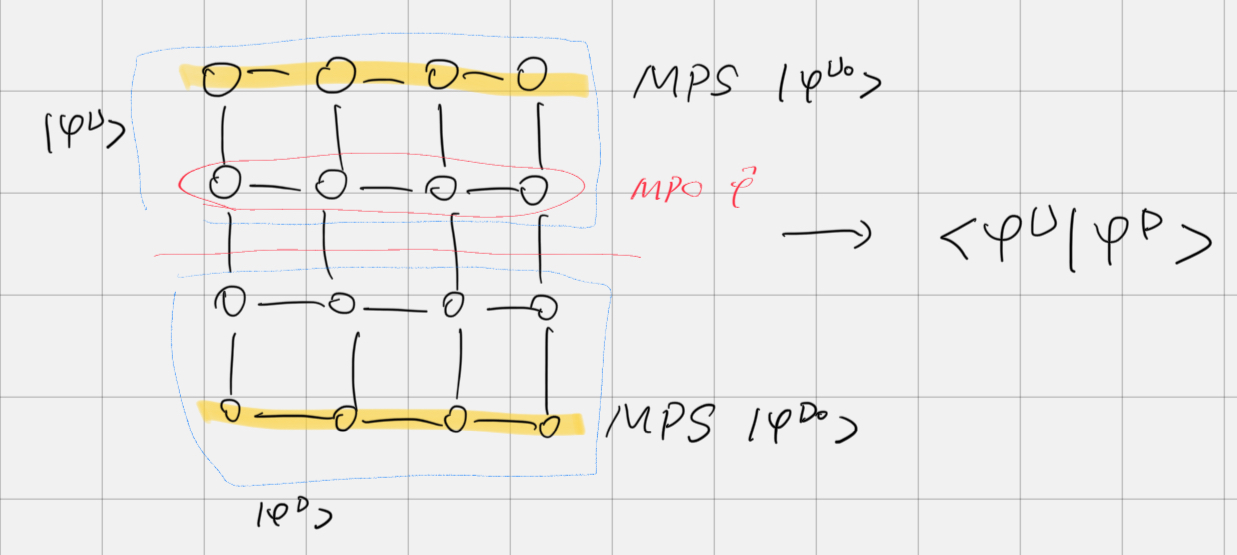 MPS |φᵁ⁰>
|φᵁ>
MPO φ̂
→ <φᵁ|φᴰ>
MPS |φᴰ⁰>
|φᴰ>